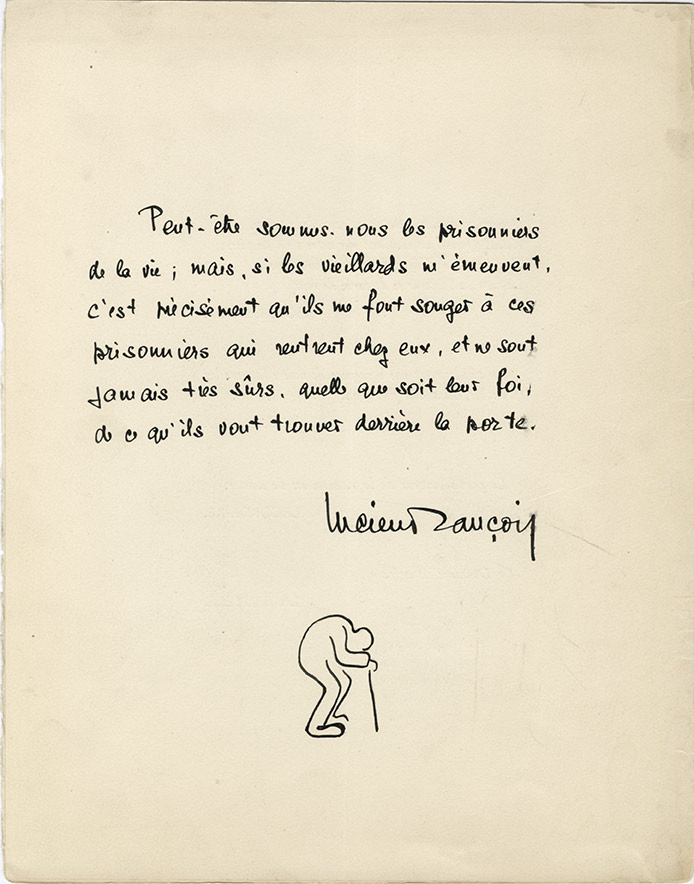 Peut-être sommes-nous les prisonniers
de la vie ; mais, si les vieillards m'émeuvent,
c'est précisément qu'ils me font songer à ces
prisonniers qui rentrent chez eux, et ne sont
jamais très sûrs, quelle que soit leur foi,
de ce qu'ils vont trouver derrière la porte.
Lucien François